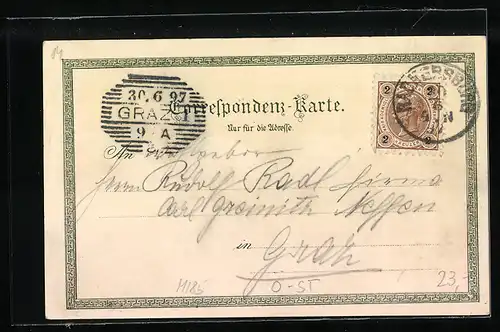 30.6.97
GRAZ 1
9 A
Correspondenz-Karte.
Nur für die Adresse.
2 2
2 2
An
Herrn Rudolf Radl Firma
Carl Greinitz Neffen
in
Graz
M185
O-ST
23,-